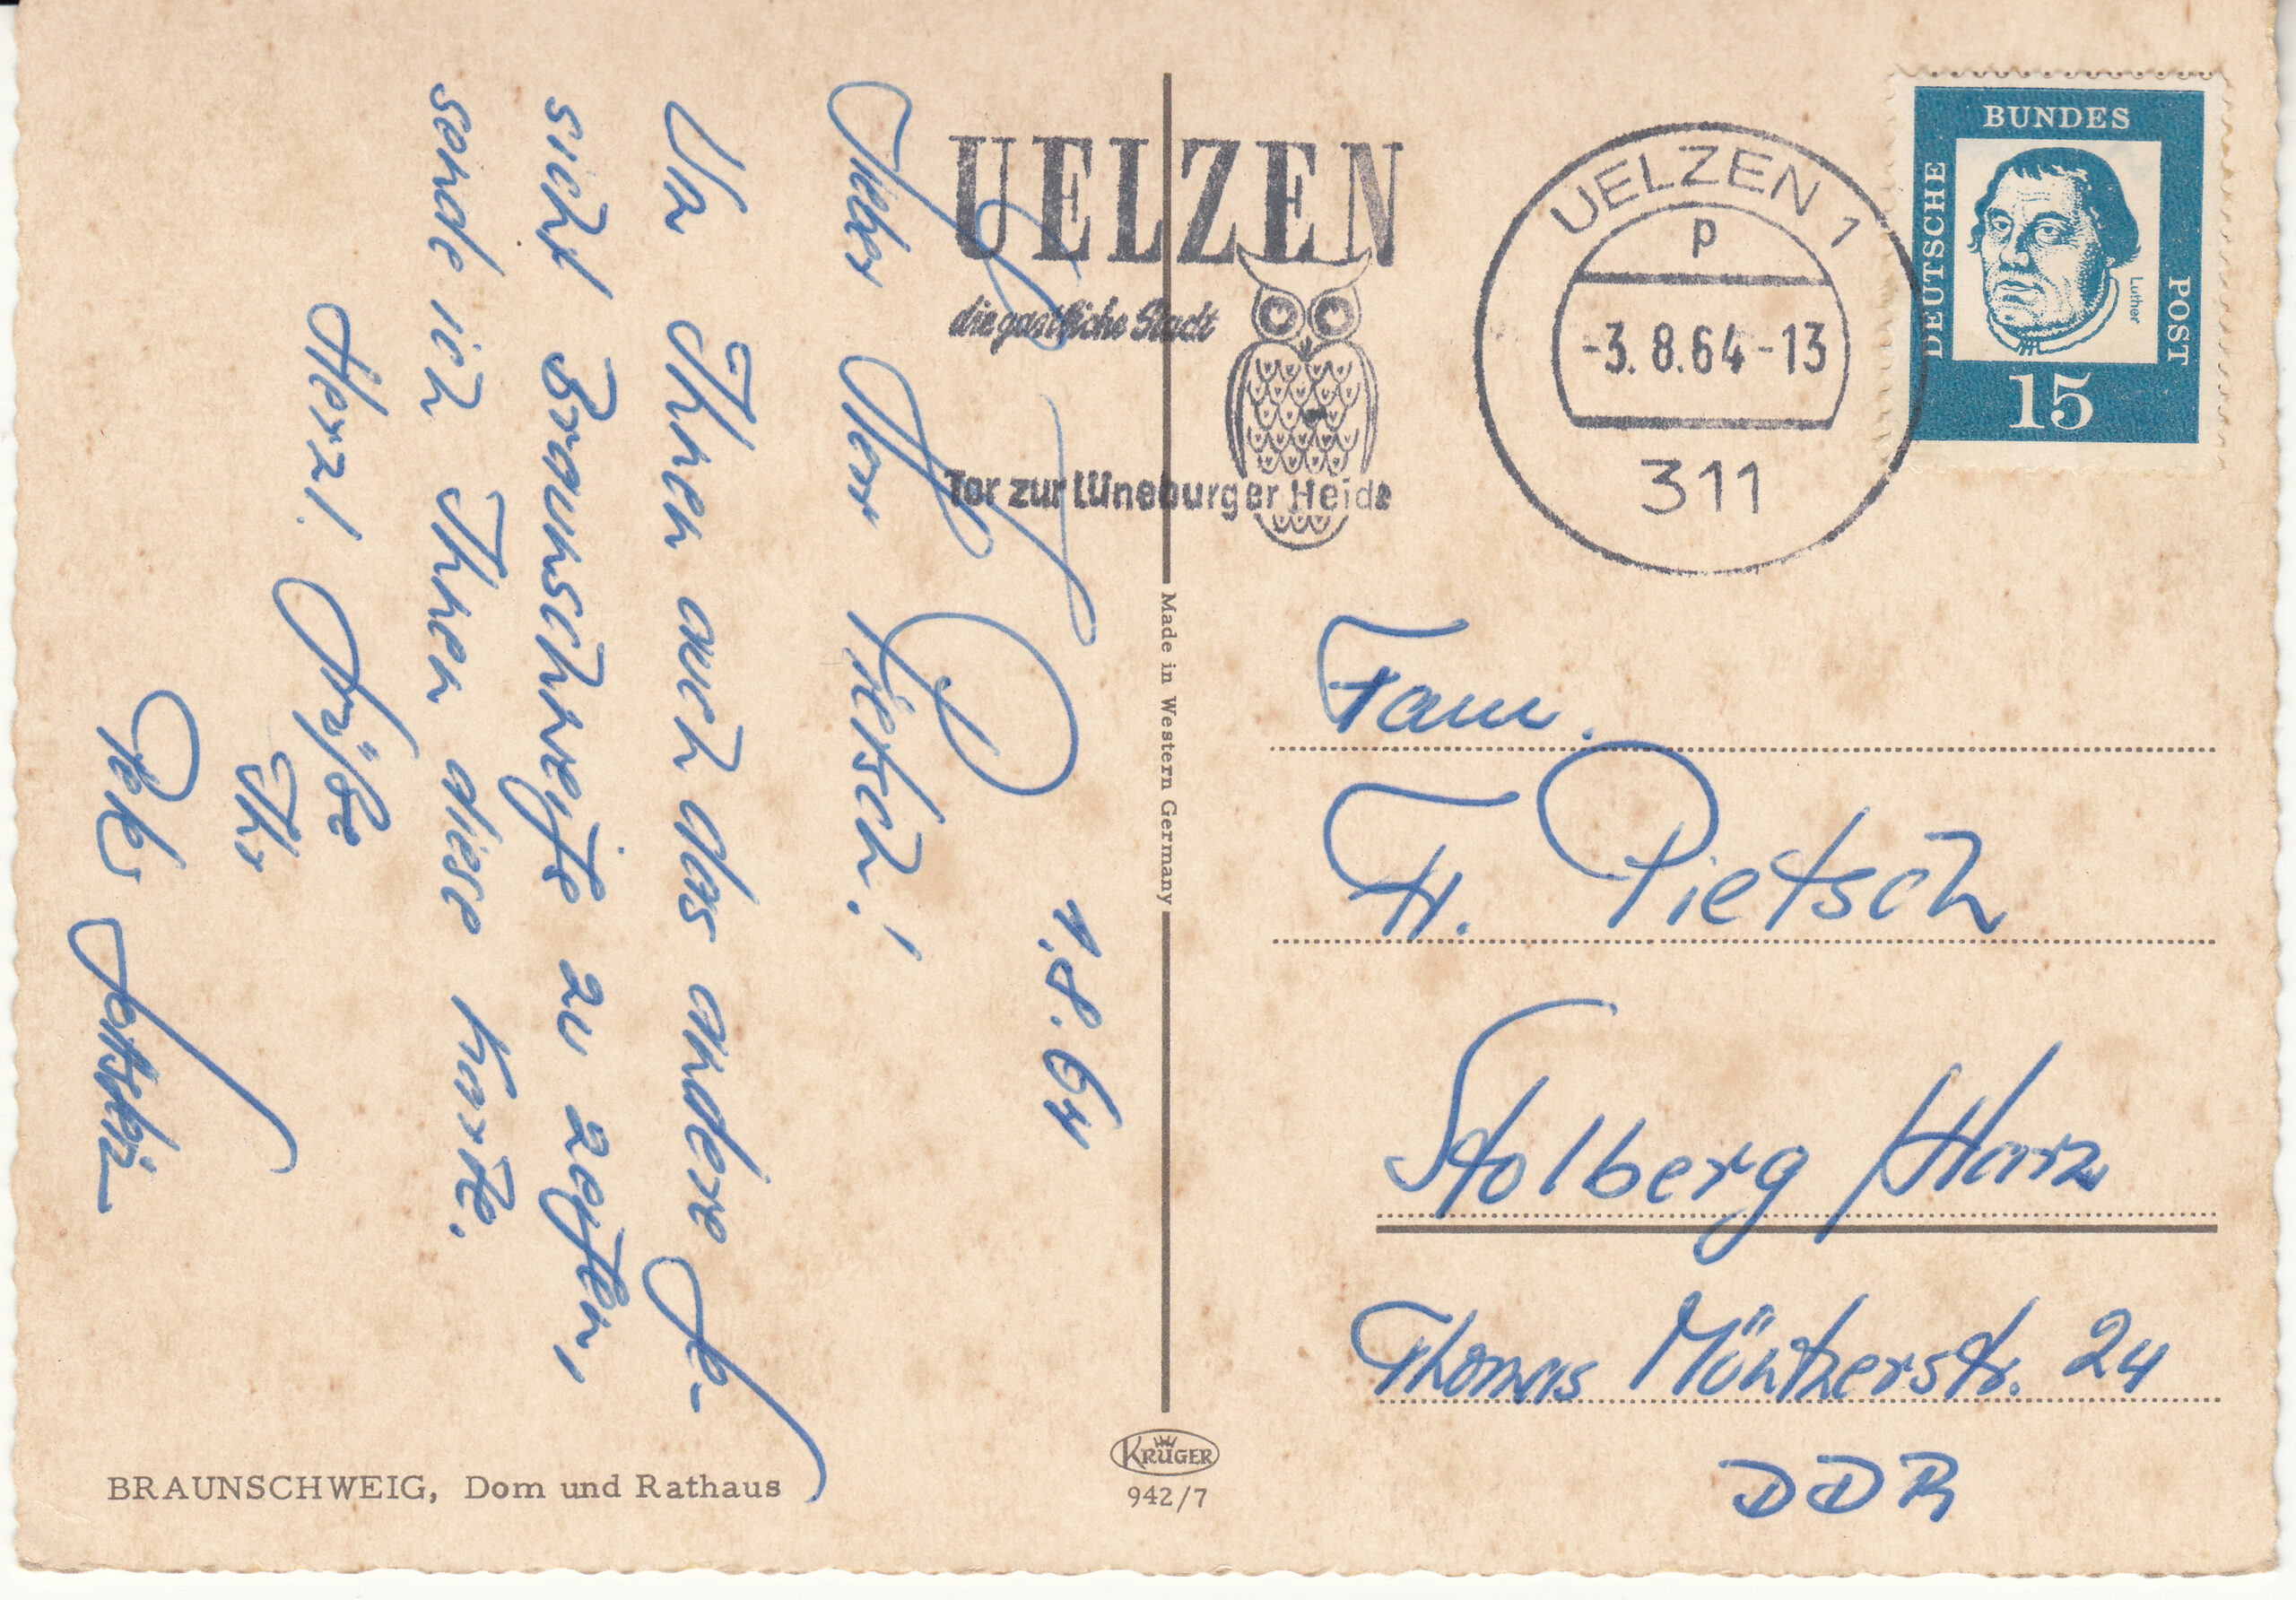 1.8.64
Lieber Herr Pietsch!
Um Ihnen auch das andere Ge-
sicht Braunschweigs zu zeigen,
sende ich Ihnen diese Karte.
Herzl. Grüße
Ihr
BRAUNSCHWEIG, Dom und Rathaus
UELZEN
die gastliche Stadt
Tor zur Lüneburger Heide
UELZEN 1
p
-3.8.64-13
311
DEUTSCHE BUNDES POST
Luther
15
Made in Western Germany
KRÜGER
942/7
Fam.
H. Pietsch
Stolberg / Harz
Thomas Müntzerstr. 24
DDR